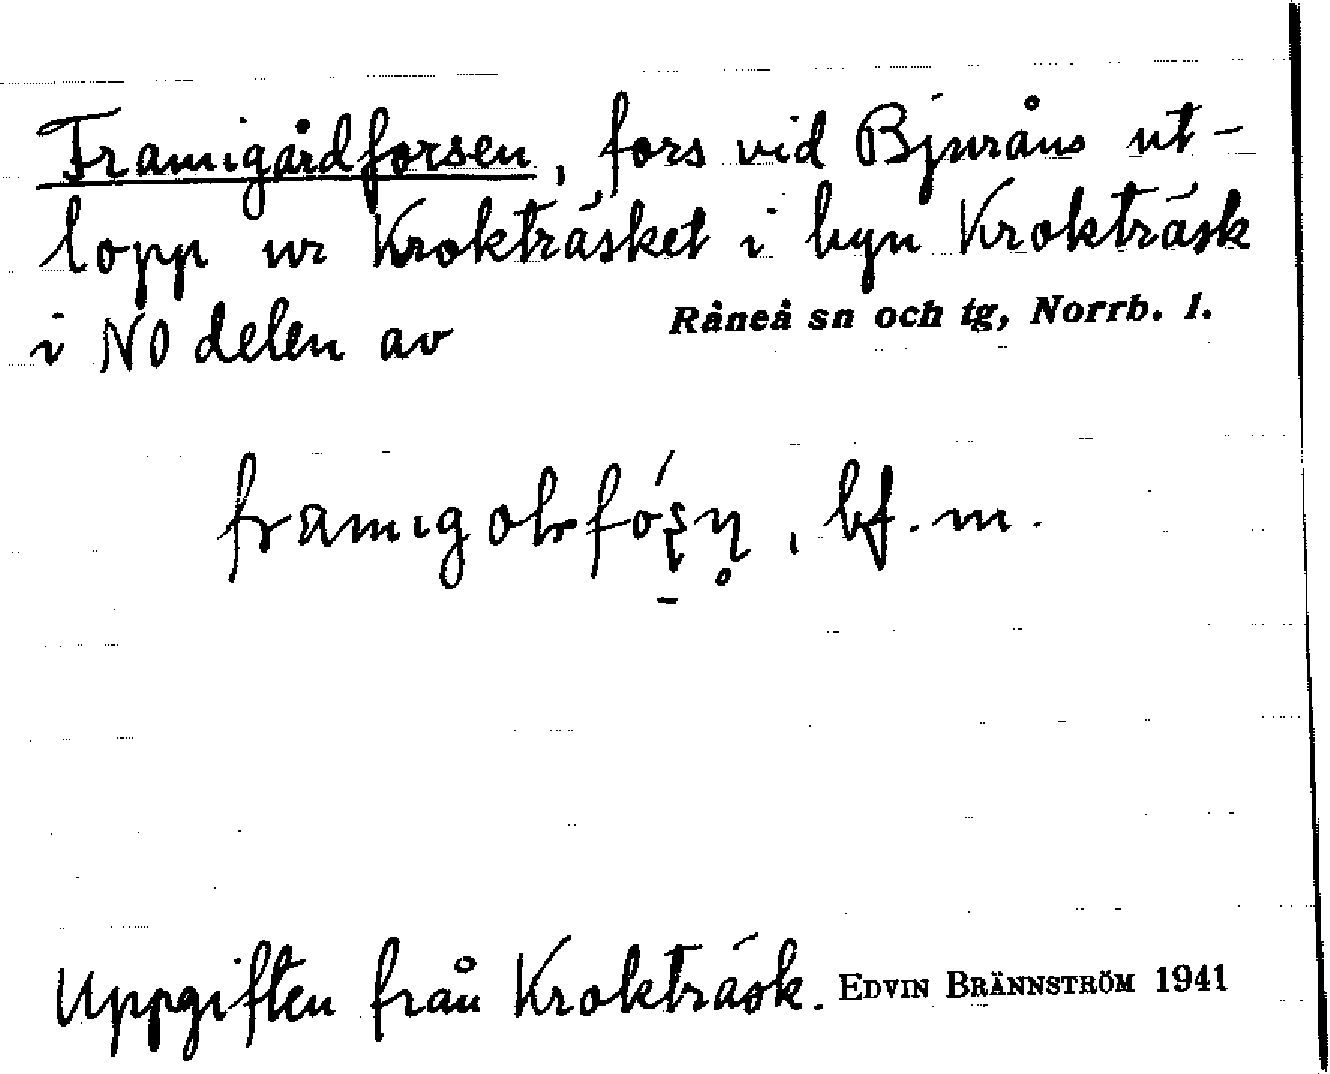 Framigårdforsen, fors vid Bjuråns ut-
lopp ur Krokträsket i byn Krokträsk
i NO delen av Råneå sn och tg, Norrb. l.
bf. m.
Uppgiften från Krokträsk. EDVIN BRÄNNSTRÖM 1941